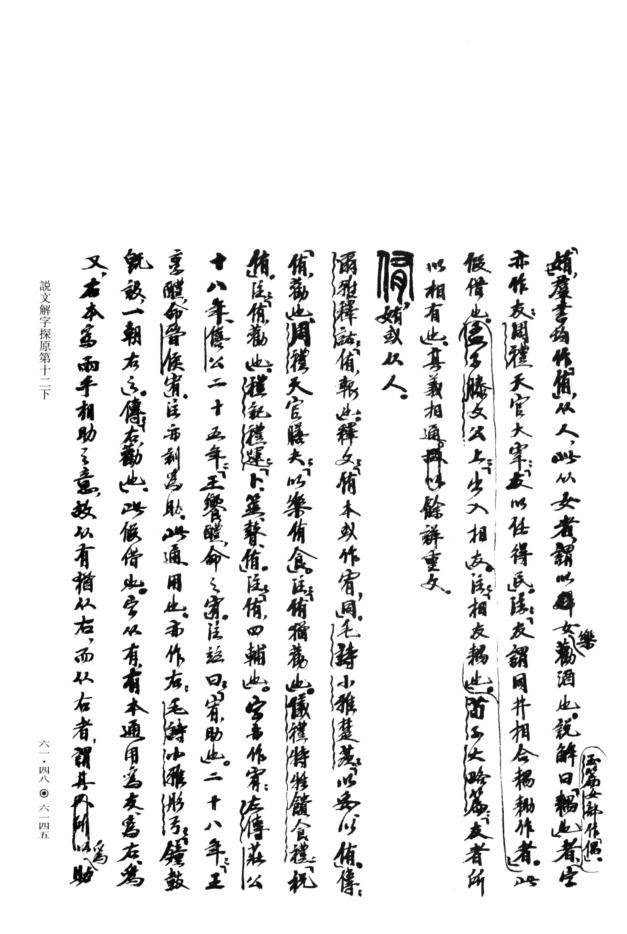 媋羣書均作侑,从人,此从女者,謂以女樂勸酒也。説解曰「耦也」者,字
玉篇女部作偶。
亦作友:周禮天官大宰「友以任得民」,注:「友謂同井相合耦耡作者。」此
假借也。孟子滕文公上「出入相友」,注:「相友,耦也。」荀子大略篇「友者所
以相有也。」其義相通,餘詳重文。
侑 姷或从人。
爾雅釋詁「侑,報也。」釋文「侑本或作宥,同。」毛詩小雅楚茨「以妥以侑」,傳:
「侑,勸也。」周禮天官膳夫「以樂侑食」,注:「侑猶勸也。」儀禮特牲饋食禮「祝
侑」,注:「侑,勸也。」禮記禮運「卜筮瞽侑」,注:「侑,四輔也。」字亦作宥:左傳莊公
十八年、僖公二十五年「王饗醴,命之宥」,注竝曰:「宥,助也。」二十八年「王
享醴,命晉侯宥」,注亦訓爲助。此通用也。亦作右:毛詩小雅彤弓「鐘鼓
既設,一朝右之」,傳「右,勸也。」此假借也。字从有,有本通用爲友、爲右,爲
又,右本爲兩手相助之意,故从有猶从右,而从右者,謂其所以爲助
説文解字探原第十二下
六一・四八◉六一四五